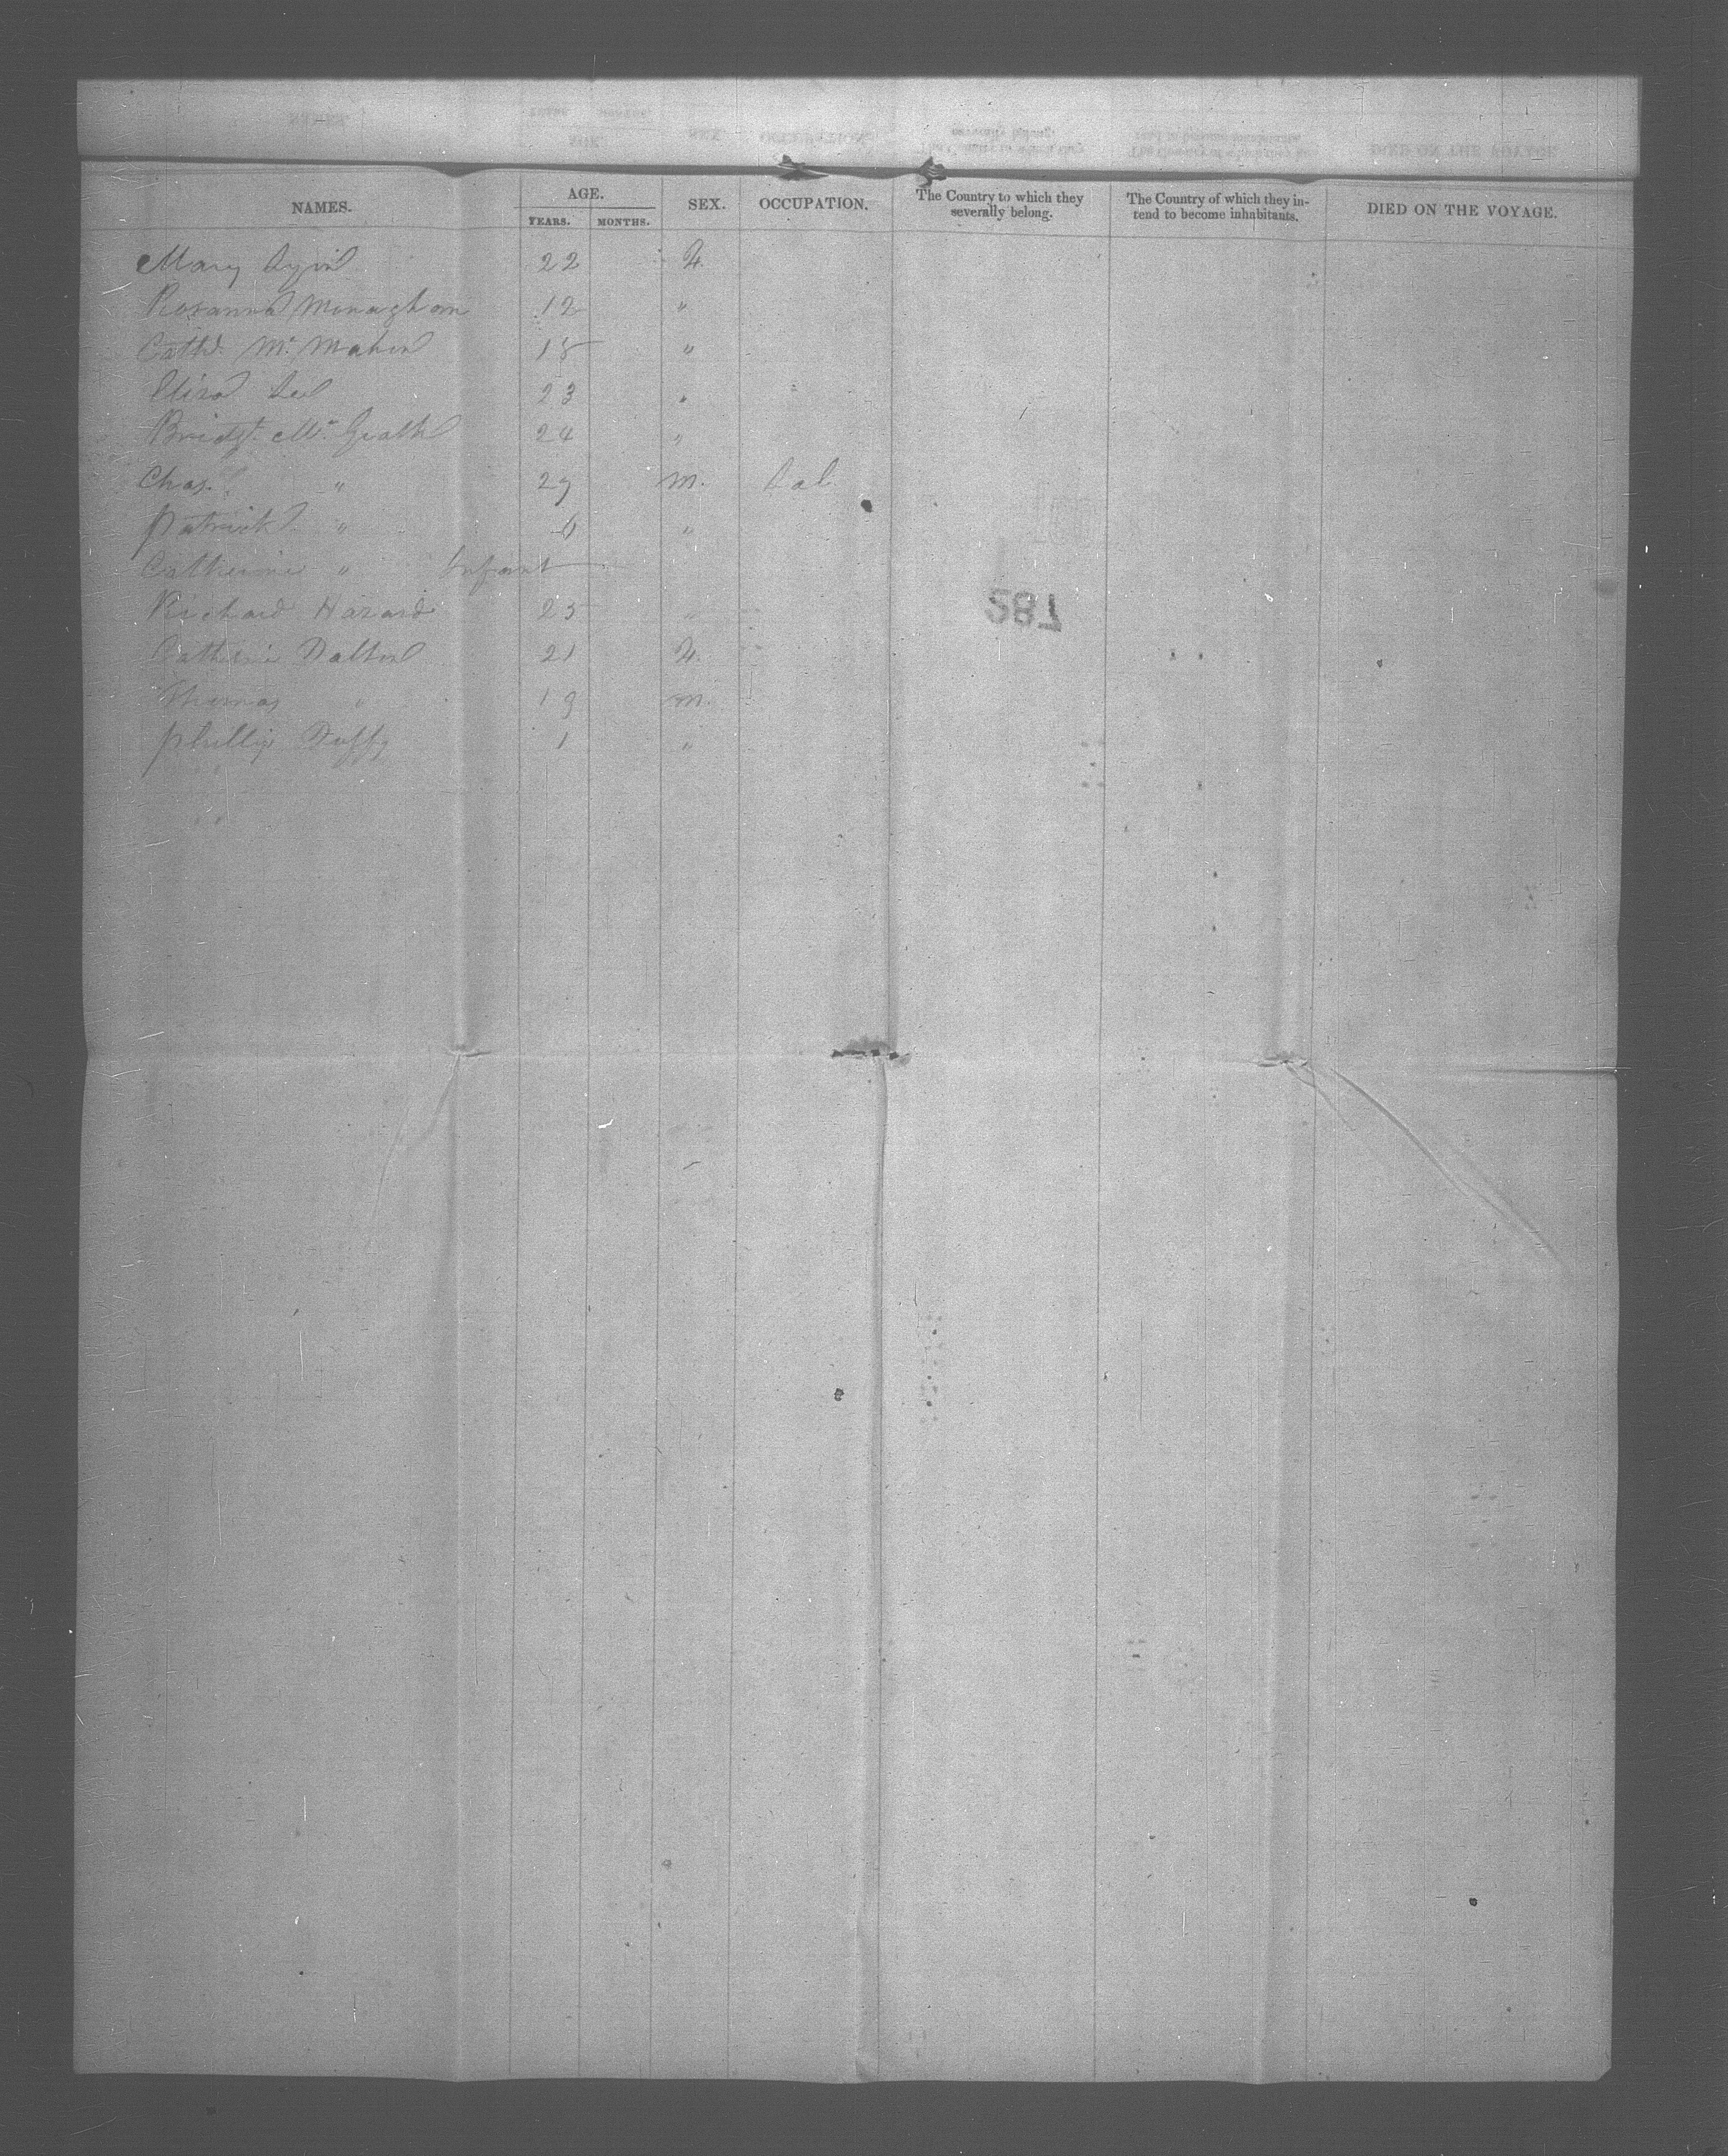 NAMES. AGE. SEX. OCCUPATION. The Country to which they severally belong. The Country of which they in-tend to become inhabitants. DIED ON THE VOYAGE.
YEARS. MONTHS.
Mary 22 F.
Rosanna Monaghan 12 "
Cath. Mc Mahon 15 "
Eliza Lee 23 "
Bridgt. Mc Grath 24 "
Chas. " 29 M. Lab
Patrick " 6 "
Catherine " Infant
Richard Harard 25 "
287
Catherine Dalton 21 F.
Thomas " 19 M.
Phillip Duffy 1 "